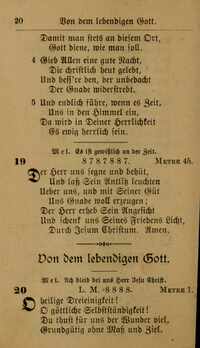 20 Von dem lebendigen Gott.
Damit man stets an diesem Ort,
Gott diene, wie man soll.
4 Gieb Allen eine gute Nacht,
Die christlich heut gelebt,
Und bess're den, der unbedacht
Der Gnade widerstrebt.
5 Und endlich führe, wenn es Zeit,
Uns in den Himmel ein,
Da wird in Deiner Herrlichkeit
Es ewig herrlich sein.
Mel. Es ist gewißlich an der Zeit.
19 8 7 8 7 8 8 7. METRE 45.
Der Herr uns segne und behüt,
Und laß Sein Antlitz leuchten
Ueber uns, und mit Seiner Güt
Uns Gnade woll erzeugen;
Der Herr erheb Sein Angesicht
Und schenk uns Seines Friedens Licht,
Durch Jesum Christum. Amen.
Von dem lebendigen Gott.
Mel. Ich bleib bei uns Herr Jesu Christ.
20 L. M.—8 8 8 8. METRE 7.
O heilige Dreieinigkeit!
O göttliche Selbstständigkeit!
Du thust für uns der Wunder viel,
Grundgütig ohne Maß und Ziel.